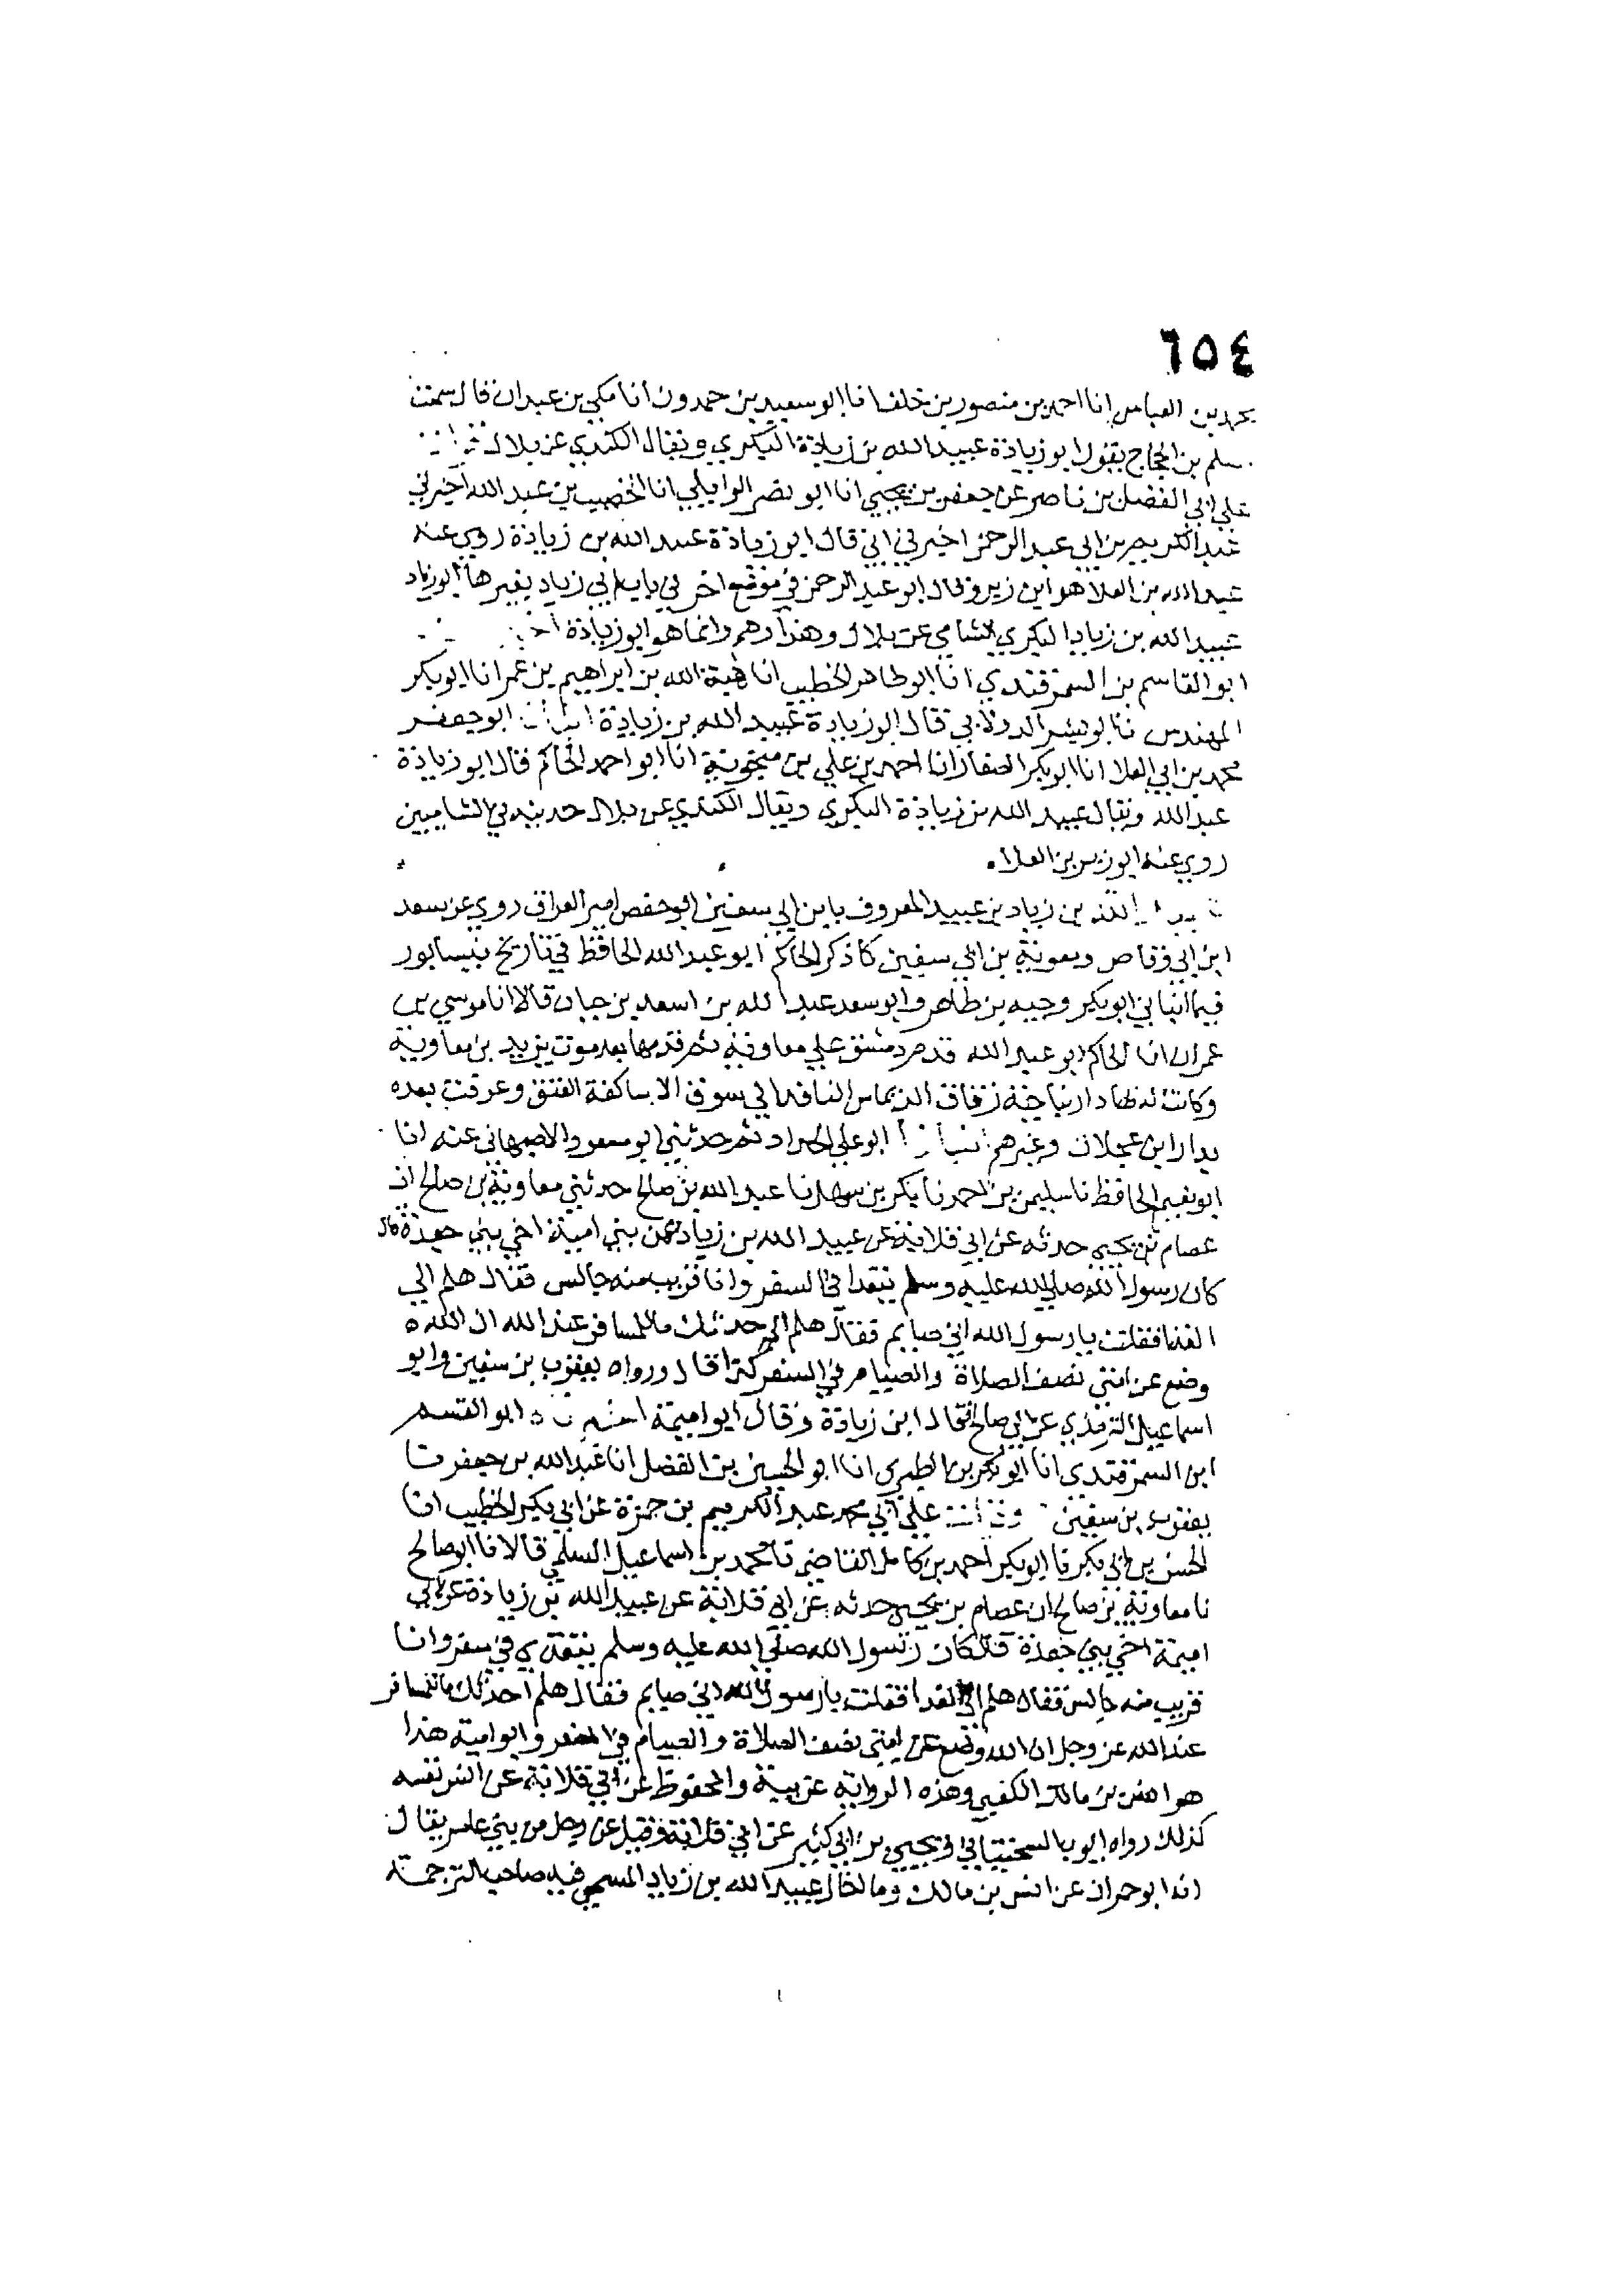 ٦٥٤
محمد بن العباس انا احمد بن منصور بن خلف انا ابو سعيد بن حمدون انا مكي بن عبدان قال سمعت
مسلم بن الحجاج يقول ابو زيادة عبيد الله بن زيادة البكري ويقال الكندي عن بلال قرات
علي ابي الفضل بن ناصر عن جعفر بن يحيي انا ابو نصر الوايلي انا الخصيب بن عبد الله اخبرني
عبد الكريم بن ابي عبد الرحمن اخبرني ابي قال ابو زيادة عبيد الله بن زيادة روي عنه
عبد الله بن العلا هو ابن زبر وقال ابو عبد الرحمن في موضع اخر في باب ابي زياد بغير ها ابو زياد
عبيد الله بن زياد البكري الشامي عن بلال وهذا وهم وانما هو ابو زيادة
ابو القاسم بن السمرقندي انا ابو طاهر الخطيب انا هبة الله بن ابراهيم بن عمر انا ابو بكر
المهندس نا ابو بشر الدولابي قال ابو زيادة عبيد الله بن زيادة ابو جعفر
محمد بن ابي العلا انا ابو بكر الصفار انا احمد بن علي بن منجوية انا ابو احمد الحاكم قال ابو زيادة
عبد الله ويقال عبيد الله بن زيادة البكري ويقال الكندي عن بلال حديثه في الشاميين
روي عنه ابو زبر بن العلا
الله بن زياد بن عبيد المعروف بابن ابي سفين ابو حفص امير العراق روي عن سعد
ابن ابي وقاص ومعوية بن ابي سفين كما ذكر الحاكم ابو عبد الله الحافظ في تاريخ نيسابور
فيما انباني ابو بكر وجيه بن طاهر وابو سعد عبد الله بن اسعد بن حيان قالا انا موسي بن
عمران انا الحاكم ابو عبد الله قدم دمشق علي معاوية ثم قدمها بعد موت يزيد بن معاوية
وكانت له بها دار بناحية زقاق الديماس النافد الي سوق الاساكفة العتق وعرفت بعده
بدار ابن عجلان وغيرهم ابو علي الحداد ثم حدثني ابو مسعود الاصبهاني عنه انا
ابو نعيم الحافظ نا سليمن بن احمد نا بكر بن سهل نا عبد الله بن صالح حدثني معاوية بن صالح ان
عصام بن يحيي حدثه عن ابي قلابة عن عبيد الله بن زياد عن بني امية اخي بني جعدة قال
كان رسول الله صلي الله عليه وسلم يتغدا في السفر وانا قريب منه جالس فقال هلم الي
الغدا فقلت يا رسول الله اني صايم فقال هلم الي حدثك ما للمسافر عند الله ان الله
وضع عن امتي نصف الصلاة والصيام في السفر كذا قال ورواه يعقوب بن سفين وابو
اسماعيل الترمذي عن ابي صالح فقالا ابن زيادة وقال ابو اميمة ابو القسم
ابن السمرقندي انا ابو بكر بن الطبري انا ابو الحسين بن الفضل انا عبد الله بن جعفر نا
يعقوب بن سفين علي ابي محمد عبد الكريم بن حمزة عن ابي بكر الخطيب انا
الحسن بن ابي بكر نا ابو بكر احمد بن كامل القاضي نا محمد بن اسماعيل السلمي قالا نا ابو صالح
نا معاوية بن صالح ان عصام بن يحيي حدثه عن ابي قلابة عن عبيد الله بن زيادة عن ابي
اميمة اخي بني جعدة قال كان رسول الله صلي الله عليه وسلم يتغدي في سفر وانا
قريب منه جالس فقال هلم الي الغدا فقلت يا رسول الله اني صايم فقال هلم احدثك ما للمسافر
عند الله عز وجل ان الله وضع عن امتي نصف الصلاة والصيام في السفر وابو امية هذا
هو انس بن مالك الكعبي وهذه الرواية غريبة والمحفوظ عن ابي قلابة عن انس نفسه
كذلك رواه ايوب السختياني ويحيي بن ابي كثير عن ابي قلابة وقيل عن رجل من بني عامر يقال
انه ابو حمران عن انس بن مالك وما اخال عبيد الله بن زياد المسمي فيه صاحب الترجمة